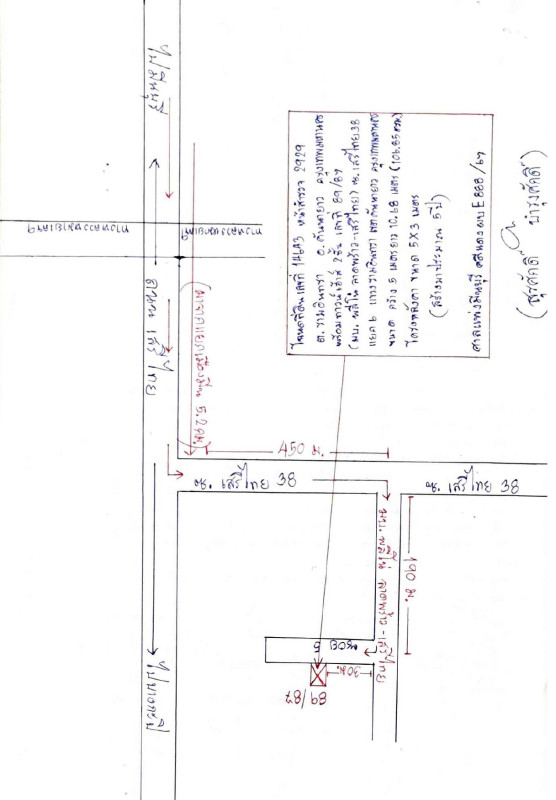 โฉนดที่ดินเลขที่ 14643 หน้าสำรวจ 2929
ต.รามอินทรา อ.คันนายาว กรุงเทพมหานคร
พร้อมทาวน์เฮ้าส์ 2ชั้น เลขที่ 89/87
(มบ. พลีโน่ ลาดพร้าว-เสรีไทย) ซ.เสรีไทย 38
แยก 6 แขวงรามอินทรา เขตคันนายาว กรุงเทพมหานคร
ขนาด กว้าง 5 เมตร ยาว 10.68 เมตร (106.85 ตรม)
โครงหลังคา ขนาด 5X3 เมตร
(สร้างมาประมาณ 5 ปี)
ศาลแพ่งมีนบุรี คดีแดง ผบ E 888/67
ไปมีนบุรี
ถนน เสรีไทย
5.2 กม.
450 ม.
ซ. เสรีไทย 38
ซ. เสรีไทย 38
190 ม.
มบ. พลีโน่ ลาดพร้าว - เสรีไทย
ซอย 5
30 ม.
89/87